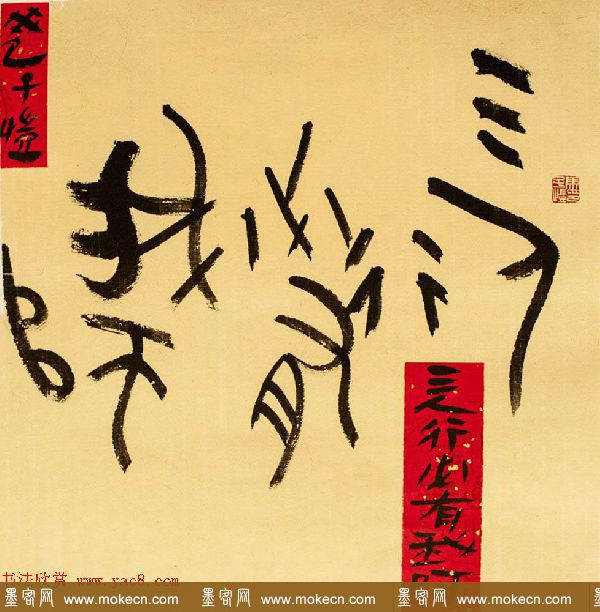 三人行
必有
我師
三人行必有我
书法欣赏 www.yac8.com
墨客网 www.mokecn.com 墨客网 www.mokecn.com 墨客网 www.mokecn.com